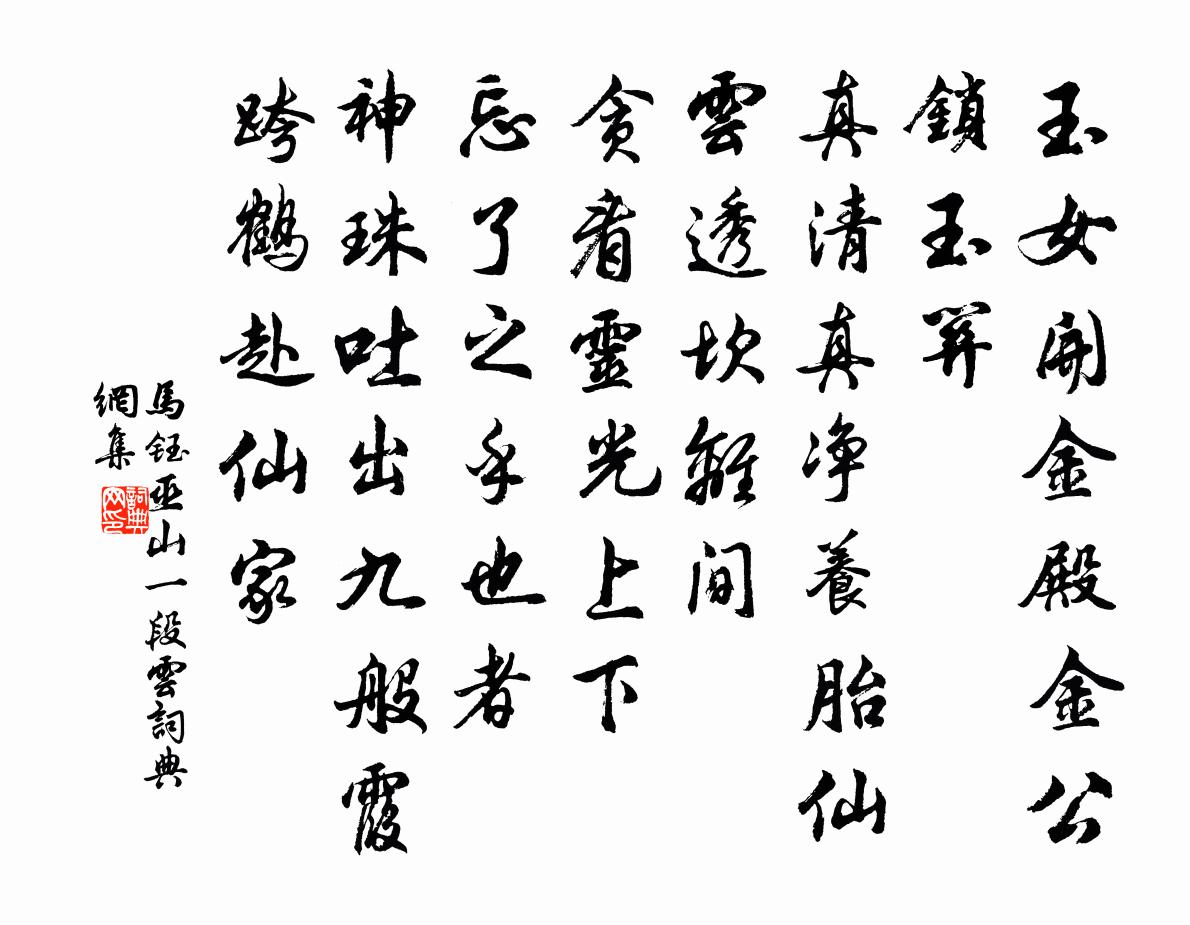 玉女開金殿金公
鎖玉關
真清真净養胎仙
雲透坎離間
貪看靈光上下
忘了之乎也者
神珠吐出九般霞
跨鶴赴仙家
馬鈺巫山一段雲詞典
網集
詞典
网印